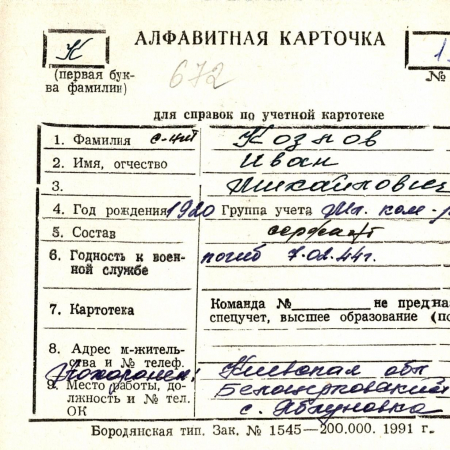 К АЛФАВИТНАЯ КАРТОЧКА 1
(первая бук-
ва фамилии) 672 №
для справок по учетной картотеке
1. Фамилия с-нт Кознов
2. Имя, отчество Иван
3. Михайлович
4. Год рождения 1920 Группа учета Мл. ком-
5. Состав сержант
6. Годность к воен-
ной службе погиб 7.02.44г.
7. Картотека Команда № не предна
спецучет, высшее образование (по
8. Адрес м-житель-
ства и № телеф. Киевская обл
Похоронен:
9. Место работы, до- Белоцерковский
лжность и № тел. с. Яблуновка
ОК
Бородянская тип. Зак. № 1545—200.000. 1991 г.